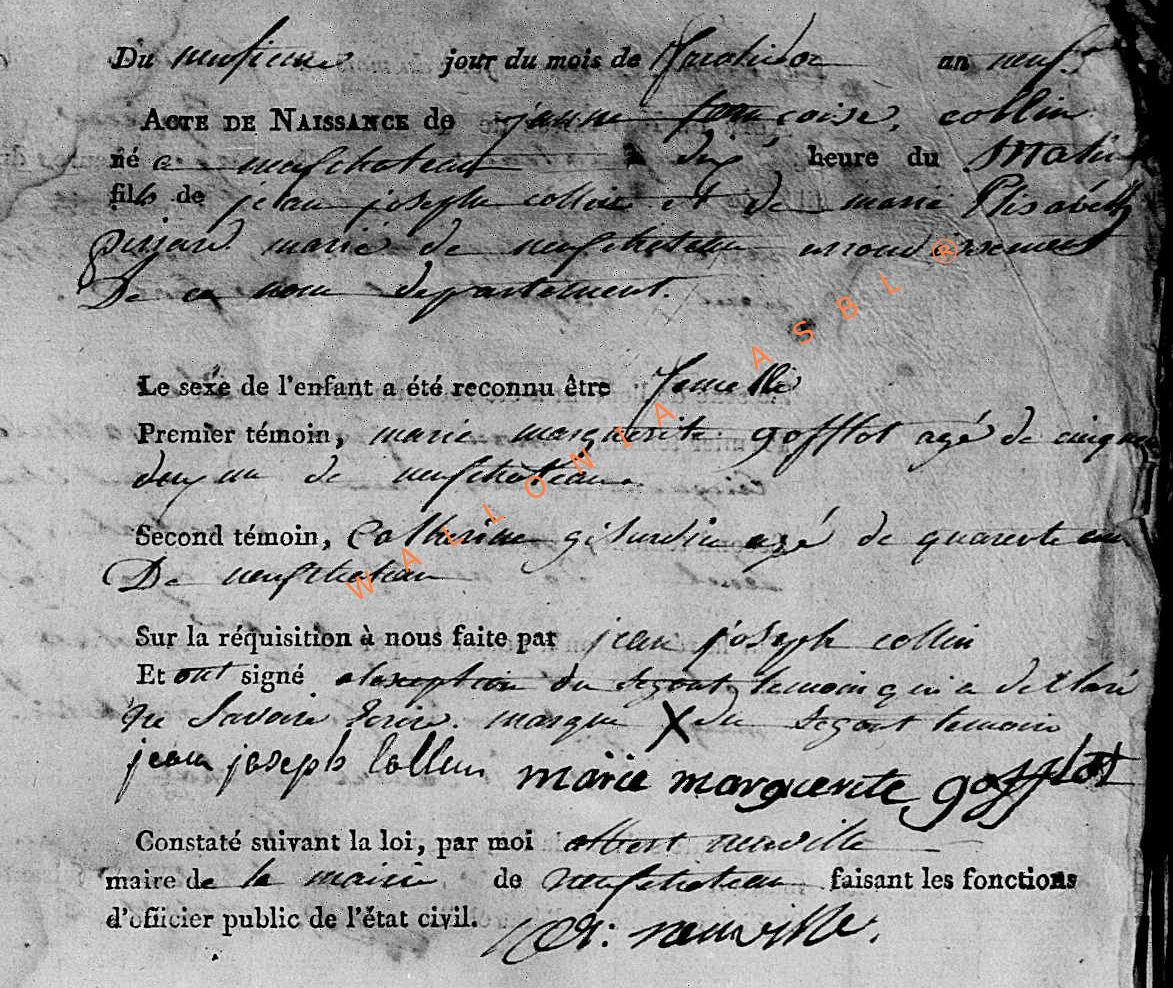 Du neufieme jour du mois de fructidor an neuf.
ACTE DE NAISSANCE de jeanne francoise, collin
né a neufchateau a dix heure du Matin
fils de jean joseph collin et de marie Elisabeth
marié de neufchateau arrondissement
De ce nom departement.
Le sexe de l'enfant a été reconnu être femelle
Premier témoin, marie marguerite gofflot agé de cinquante
deux an de neufchateau.
Second témoin, Catherine gilurdin agé de quarente an
De neufchateau
Sur la réquisition à nous faite par jean joseph collin
Et ont signé alaxeption du segont temoin qui a declaré
ne Savoire Ecrire. marque X du segont temoin
jean joseph Collin marie marguerite gofflot
Constaté suivant la loi, par moi albert neuville
maire de la mairie de neufchateau faisant les fonctions
d'officier public de l'état civil. neuville.
WALLONIA ASBL ®